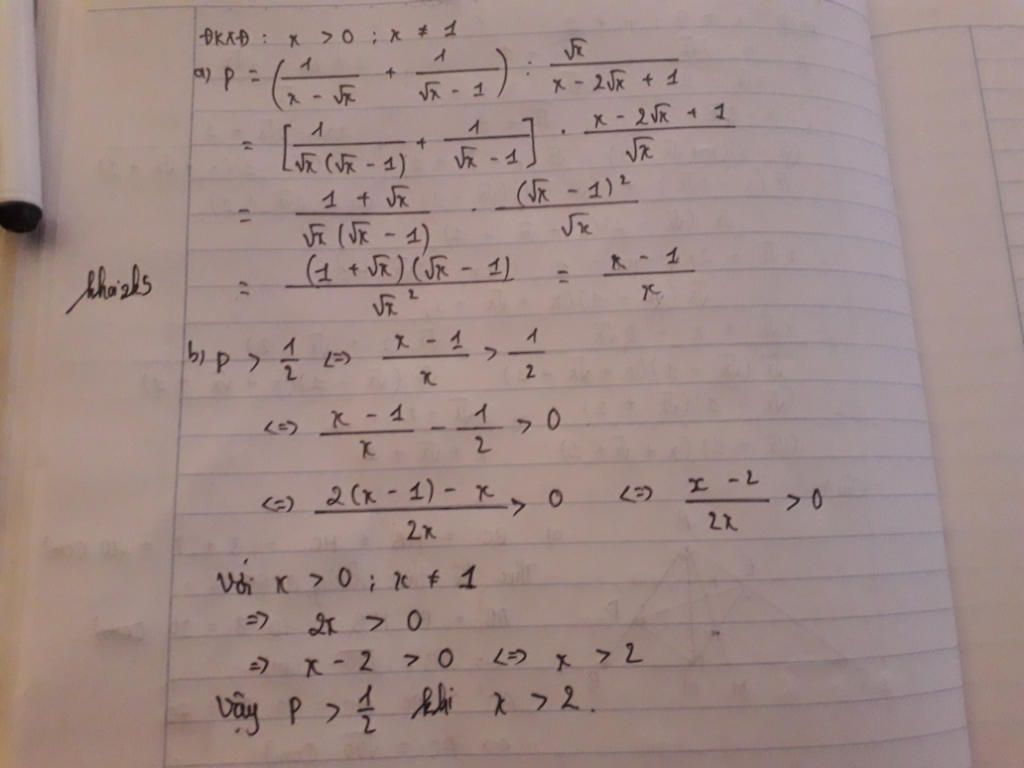 ĐKXĐ : x > 0 ; x ≠ 1
a) P = (1/(x - √x) + 1/(√x - 1)) : √x/(x - 2√x + 1)
= [1/(√x (√x - 1)) + 1/(√x - 1)] . (x - 2√x + 1)/√x
= (1 + √x)/(√x (√x - 1)) . (√x - 1)²/√x
khaizks
= ((1 + √x)(√x - 1))/√x² = (x - 1)/x
b) P > 1/2 <=> (x - 1)/x > 1/2
<=> (x - 1)/x - 1/2 > 0
<=> (2(x - 1) - x)/2x > 0 <=> (x - 2)/2x > 0
Với x > 0 ; x ≠ 1
=> 2x > 0
=> x - 2 > 0 <=> x > 2
Vậy P > 1/2 khi x > 2.